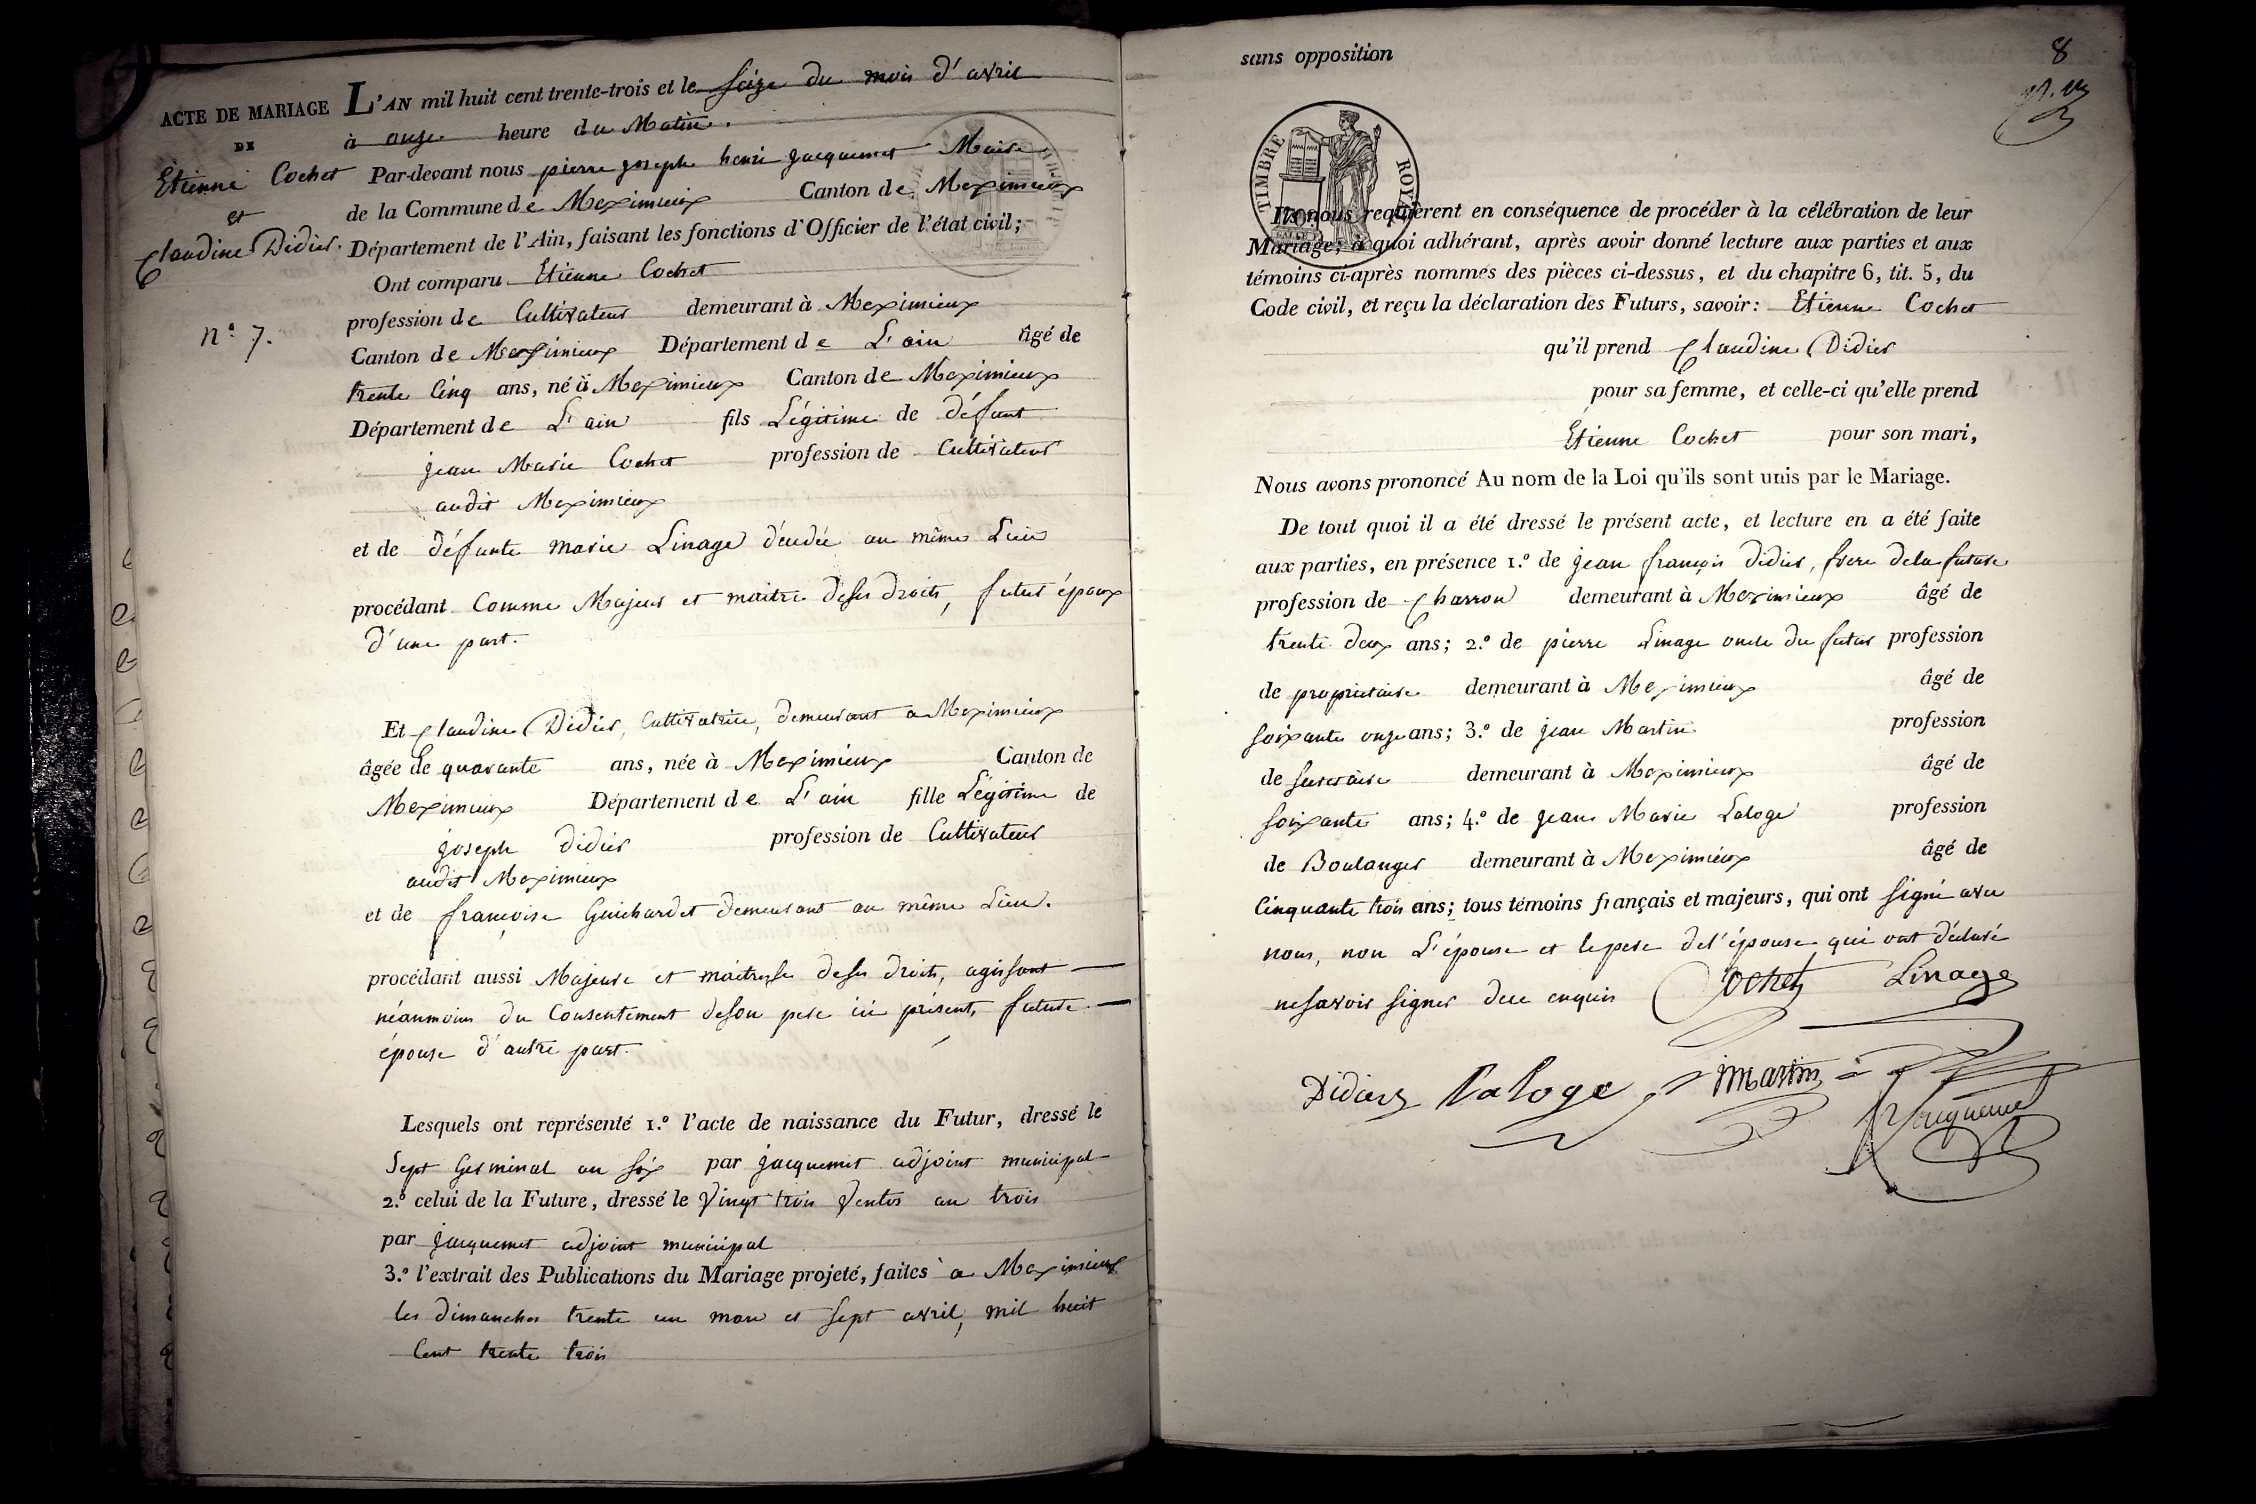 ACTE DE MARIAGE
DE
Etienne Cochet
et
Claudine Didier.
n.° 7.
L'AN mil huit cent trente-trois et le seize du mois d'avril
à onze heure du Matin.
Par-devant nous pierre joseph henri jacquemet Maire
de la Commune de Meximieux Canton de Meximieux
Département de l'Ain, faisant les fonctions d'Officier de l'état civil;
Ont comparu Etienne Cochet
profession de Cultivateur demeurant à Meximieux
Canton de Meximieux Département de L'ain âgé de
trente Cinq ans, né à Meximieux Canton de Meximieux
Département de L'ain fils Légitime de défunt
jean Marie Cochet profession de Cultivateur
audit Meximieux
et de défunte marie Linage décédée au même Lieu
procédant Comme Majeur et maitre deses droits, futur époux
d'une part.
Et Claudine Didier, Cultivatrice, demeurant a Meximieux
âgée de quarante ans, née à Meximieux Canton de
Meximieux Département de L'ain fille Légitime de
joseph didier profession de Cultivateur
audit Meximieux
et de françoise Guichardet demeurant au même Lieu.
procédant aussi Majeure et maitresse deses droits, agissant
néanmoins du Consentement deson pere ici présent, future
épouse d'autre part.
Lesquels ont représenté 1.° l'acte de naissance du Futur, dressé le
Sept Germinal an six par jacquemet adjoint municipal
2.° celui de la Future, dressé le Vingt trois Ventos an trois
par jacquemet adjoint municipal
3.° l'extrait des Publications du Mariage projeté, faites à Meximieux
les dimanches trente un mars et sept avril, mil huit
Cent trente trois
sans opposition
8
TIMBRE ROYAL
Ils nous requièrent en conséquence de procéder à la célébration de leur
Mariage; à quoi adhérant, après avoir donné lecture aux parties et aux
témoins ci-après nommés des pièces ci-dessus, et du chapitre 6, tit. 5, du
Code civil, et reçu la déclaration des Futurs, savoir: Etienne Cochet
qu'il prend Claudine Didier
pour sa femme, et celle-ci qu'elle prend
Etienne Cochet pour son mari,
Nous avons prononcé Au nom de la Loi qu'ils sont unis par le Mariage.
De tout quoi il a été dressé le présent acte, et lecture en a été faite
aux parties, en présence 1.° de jean françois didier, frere dela future
profession de Charron demeurant à Meximieux âgé de
trente deux ans; 2.° de pierre Linage oncle du futur profession
de propriétaire demeurant à Meximieux âgé de
soixante onze ans; 3.° de jean Martin profession
de secretaire demeurant à Meximieux âgé de
soixante ans; 4.° de jean Marie Laloge profession
de Boulanger demeurant à Meximieux âgé de
Cinquante trois ans; tous témoins français et majeurs, qui ont signé avec
nous, non L'épouse et lepere del'épouse qui ont déclaré
nesavoir signer dece enquis Cochet Linage
Didier Laloge jmartin
Jacquemet